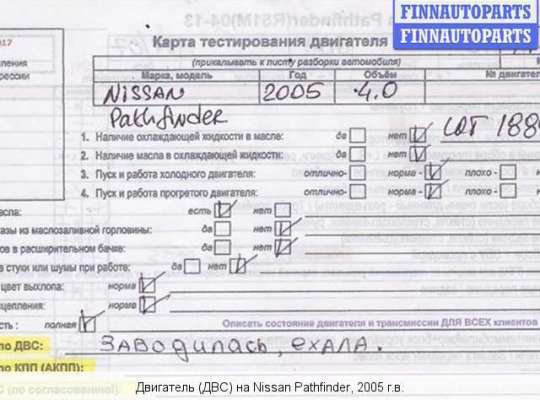 Pathfinder(R51M)04-13
FINNAUTOPARTS
FINNAUTOPARTS
2017
Карта тестирования двигателя
(прикалывать к листу разборки автомобиля)
Марка, модель Год Объём № двигател
NISSAN 2005 4.0
Pathfinder
1. Наличие охлаждающей жидкости в масле: да нет
2. Наличие масла в охлаждающей жидкости: да нет
3. Пуск и работа холодного двигателя: отлично- норма - плохо -
4. Пуск и работа прогретого двигателя: отлично- норма - плохо -
асла: есть нет
азы из маслозаливной горловины: да нет
ов в расширительном бачке: да нет
е стуки или шумы при работе: да нет
цвет выхлопа: норма
сцепления: норма
сть : полная Описать состояние двигателя и трансмиссии ДЛЯ ВСЕХ клиентов
по ДВС: ЗАВОДИЛАСЬ, ЕХАЛА.
по КПП (АКПП):
С (по согласованию):
Двигатель (ДВС) на Nissan Pathfinder, 2005 г.в.